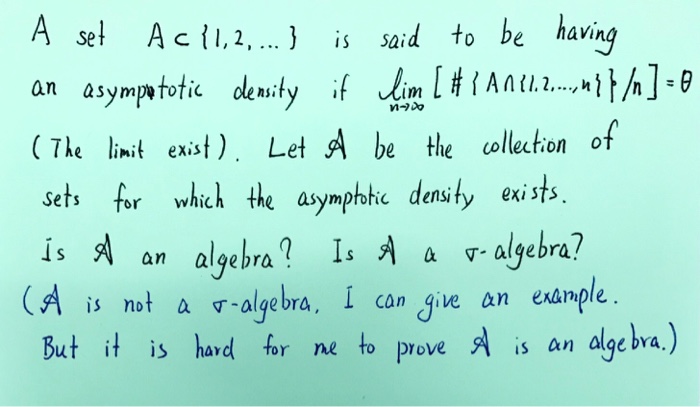 A set A ⊂ {1, 2, ... } is said to be having
an asympotic density if lim n→∞ [ # { A ∩ {1. 2, ..., n} } /n ] = θ
( The limit exist ). Let 𝒜 be the collection of
sets for which the asymptotic density exists.
is 𝒜 an algebra? Is 𝒜 a σ-algebra?
(𝒜 is not a σ-algebra, I can give an example.
But it is hard for me to prove 𝒜 is an algebra.)